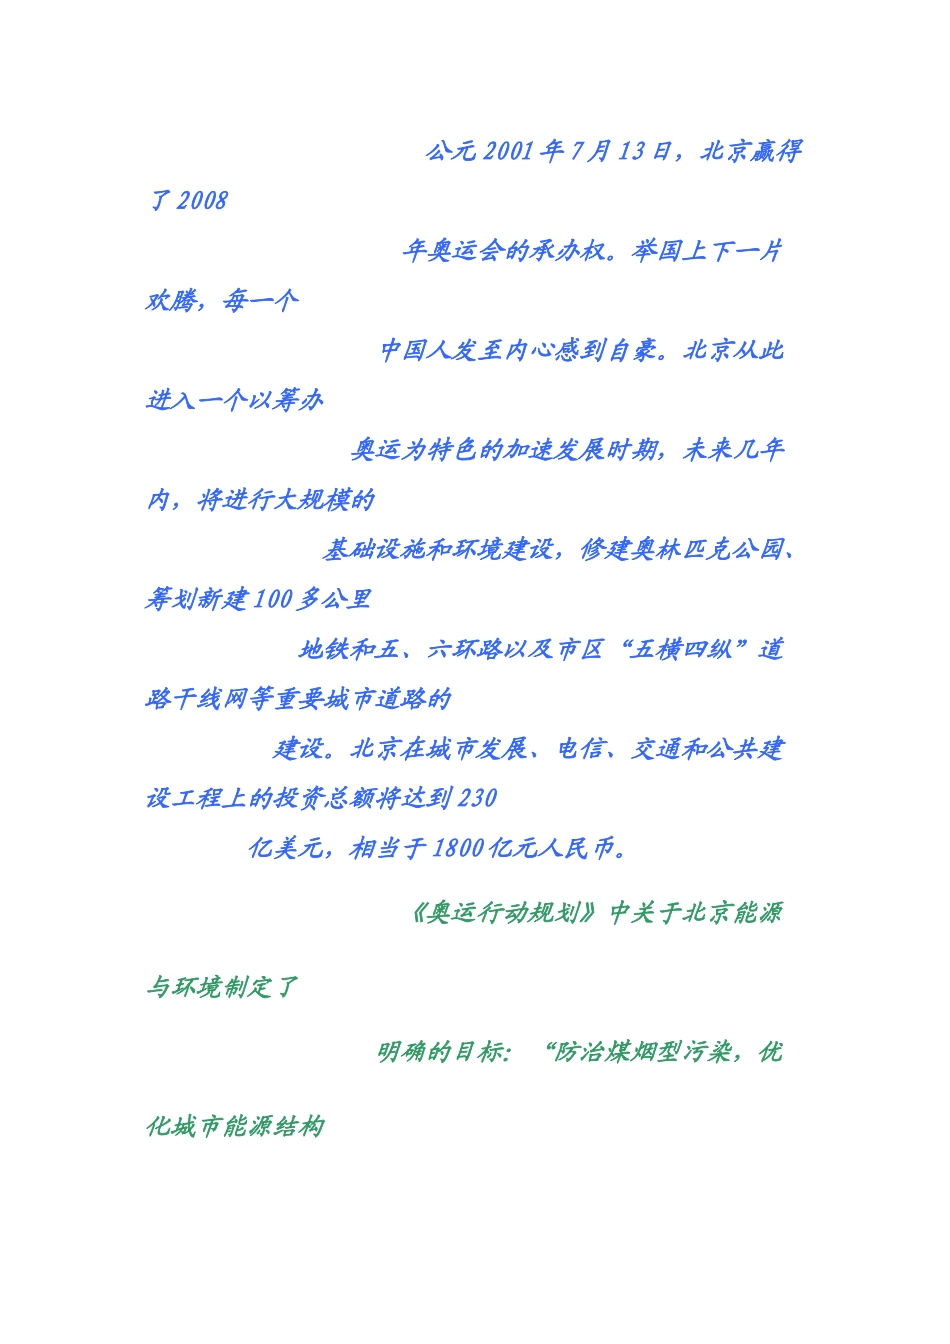 公元 2001 年 7 月 13 日，北京赢得
了 2008
年奥运会的承办权。举国上下一片
欢腾，每一个
中国人发至内心感到自豪。北京从此
进入一个以筹办
奥运为特色的加速发展时期，未来几年
内，将进行大规模的
基础设施和环境建设，修建奥林匹克公园、
筹划新建 100 多公里
地铁和五、六环路以及市区“五横四纵”道
路干线网等重要城市道路的
建设。北京在城市发展、电信、交通和公共建
设工程上的投资总额将达到 230
亿美元，相当于 1800 亿元人民币。
《奥运行动规划》中关于北京能源
与环境制定了
明确的目标：“防治煤烟型污染，优
化城市能源结构